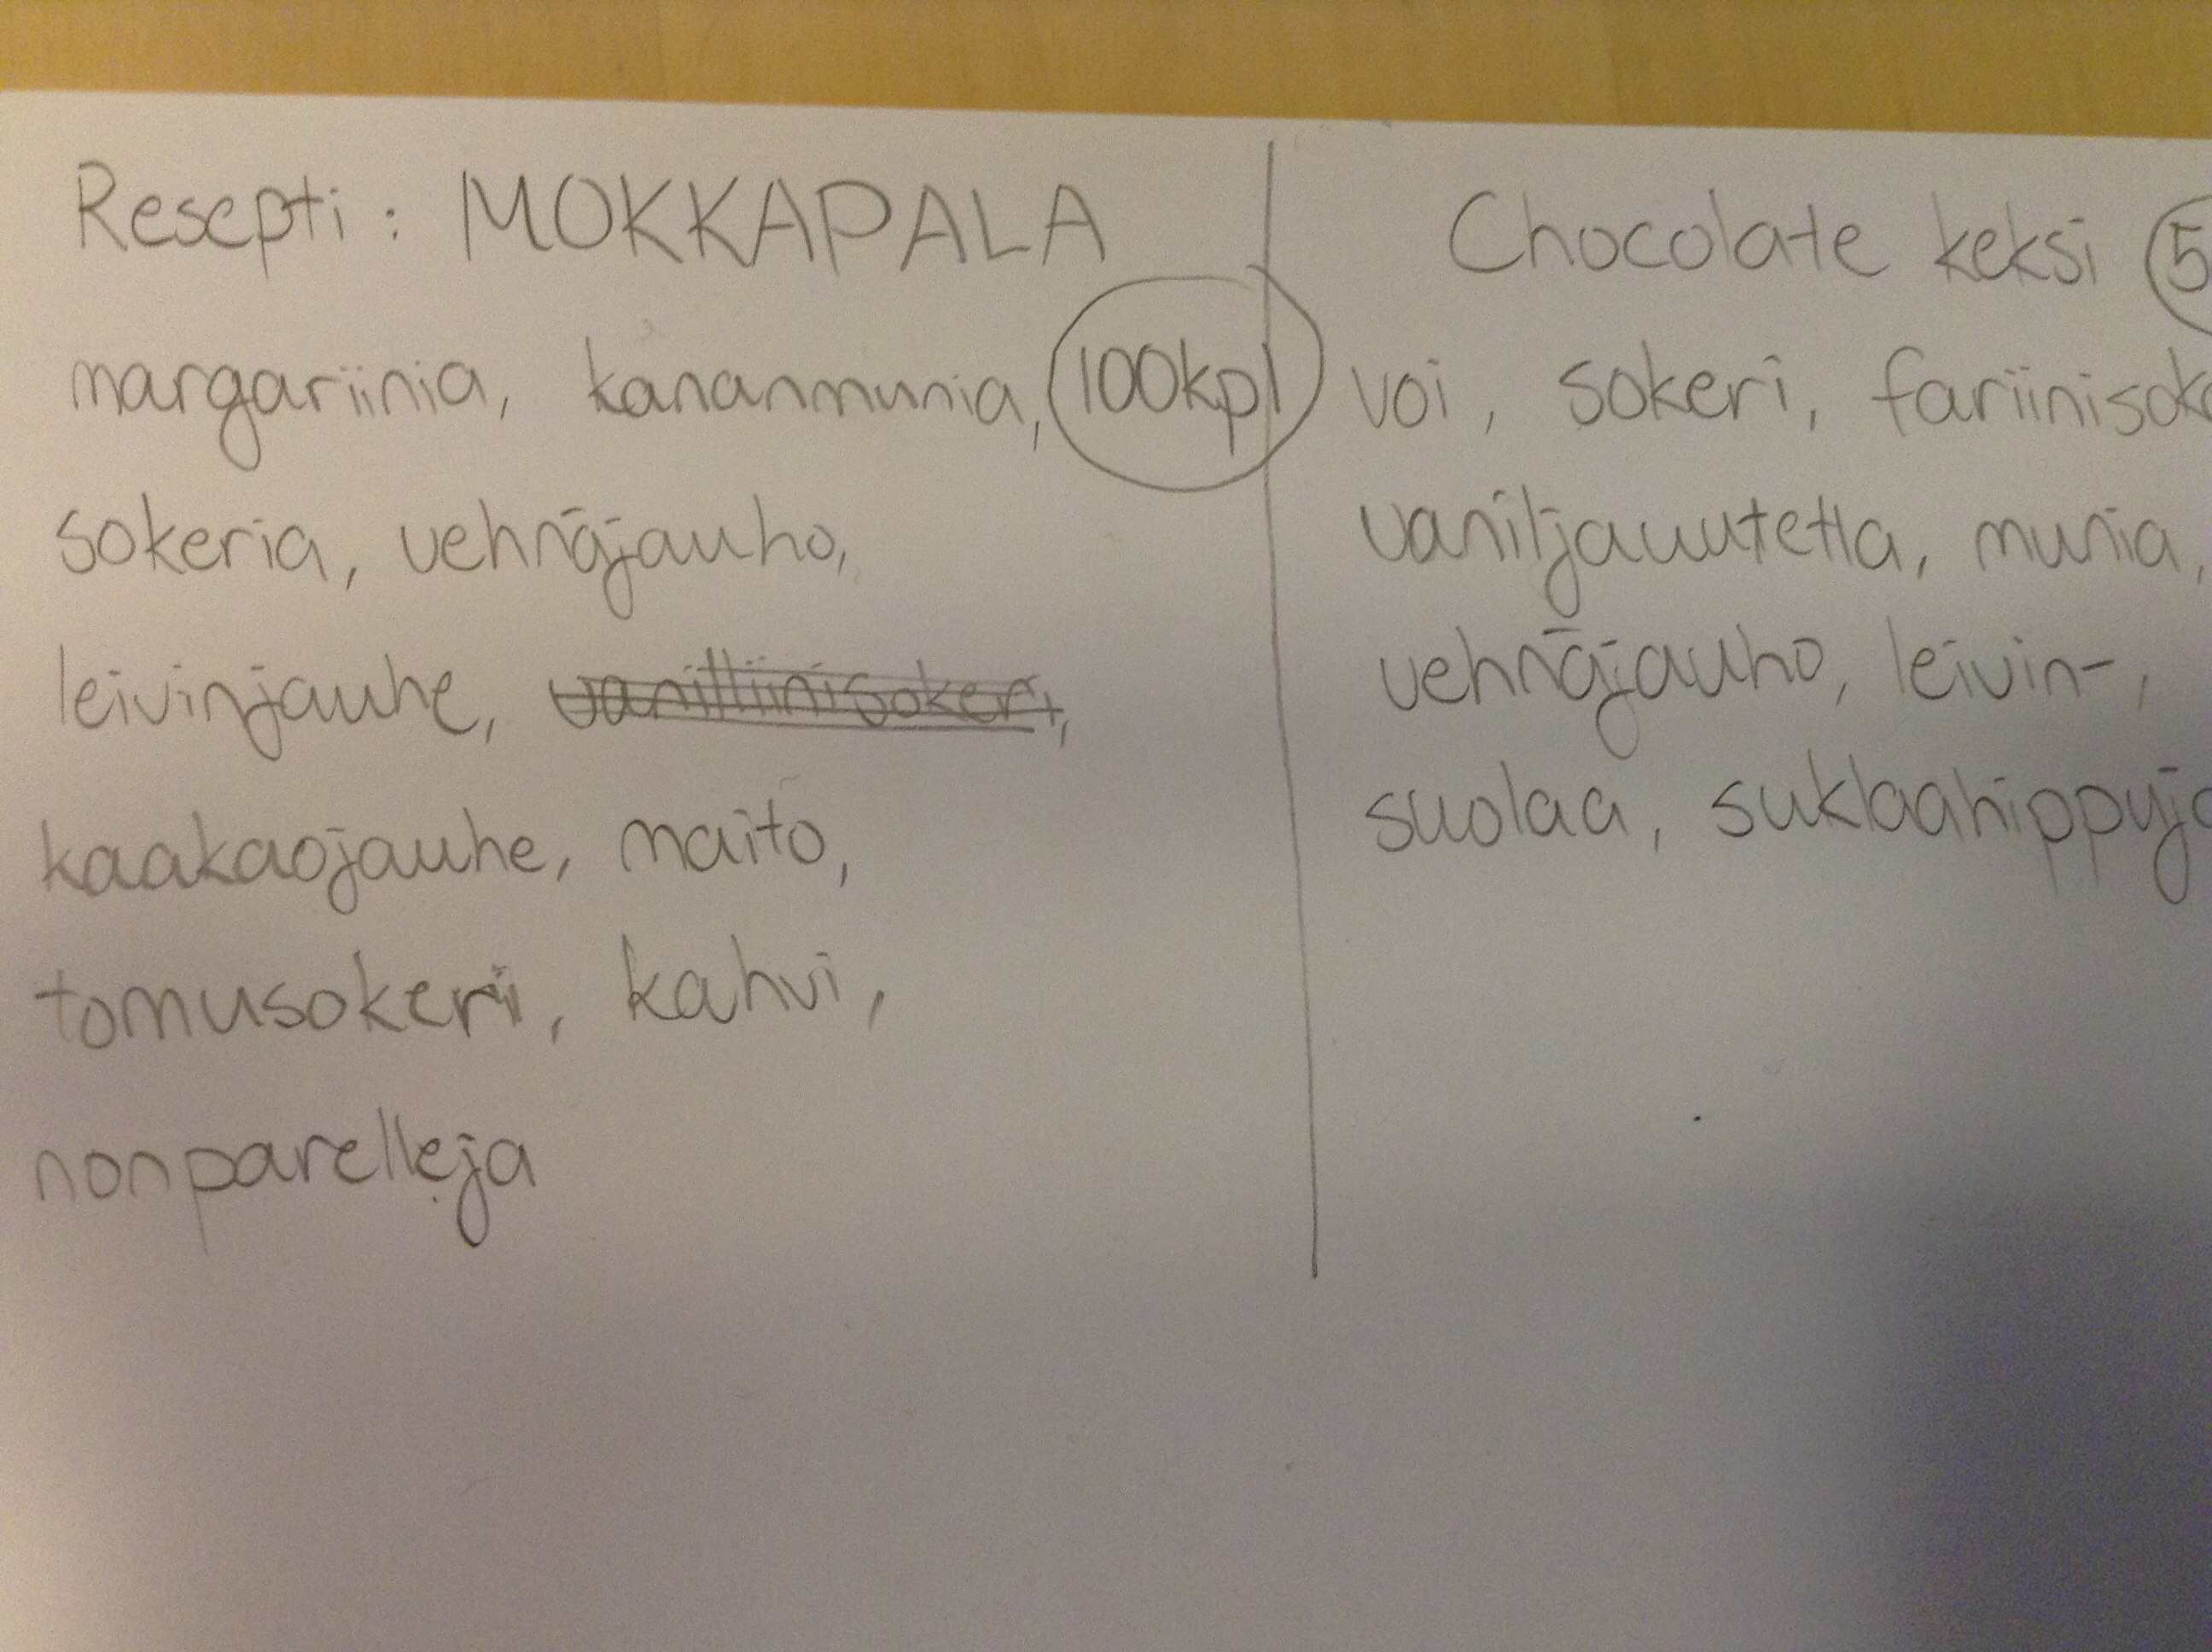 Resepti: MOKKAPALA
margariinia, kananmunia, 100kpl
sokeria, vehnäjauho,
leivinjauhe, vanilliinisokeri,
kaakaojauhe, maito,
tomusokeri, kahvi,
nonparelleja
Chocolate keksi 5
voi, sokeri, fariinisok
vaniljauutetta, munia,
vehnäjauho, leivin-,
suolaa, suklaahippuja